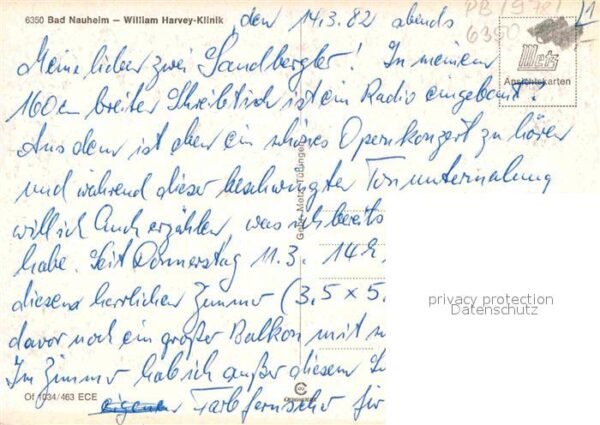 6350 Bad Nauheim – William Harvey-Klinik, den 14.3.82 abends
PB 1978! 1
6350
Metz
Ansichtskarten
Meine lieben zwei Sandbergler! In meinem
160 cm breiten Schreibtisch ist ein Radio eingebaut!
Aus dem ist eben ein schönes Opernkonzert zu hören
und während dieser beschwingten Tonuntermalung
will ich Euch erzählen, was ich bereits
habe. Seit Donnerstag 11.3. 14h.
diesem herrlichen Zimmer (3,5 x 5.
davor noch ein großer Balkon mit
Im Zimmer hab ich außer diesem
eigenen Farbfernseher für
Gebr. Metz, Tübingen
Of 1034/463 ECE
privacy protection
Datenschutz